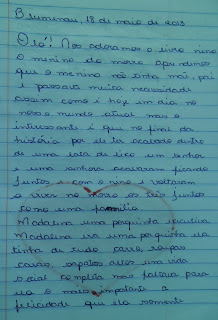 Blumenau, 18 de maio de 2013
Olá! Nos adoramos o livro nino
o menino do morro aprendimos
que o menino não tinha mãe, pai
e passava muita necessidade
assim como é hoje em dia no
nosso mundo atual mas o
interessante é que no final da
história por ele ter
de uma lata de lixo um senhor e
uma senhora acabaram ficando
juntos e com o nino e voltaram
a viver no morro os três juntos
como uma família
Madalina uma pergunta
Madalina era uma pergunta
tinha de tudo carro, roupas
casas, sapatos caros um vida
social completa mas faltava para
ela o mais importante a
felicidade que ela somente